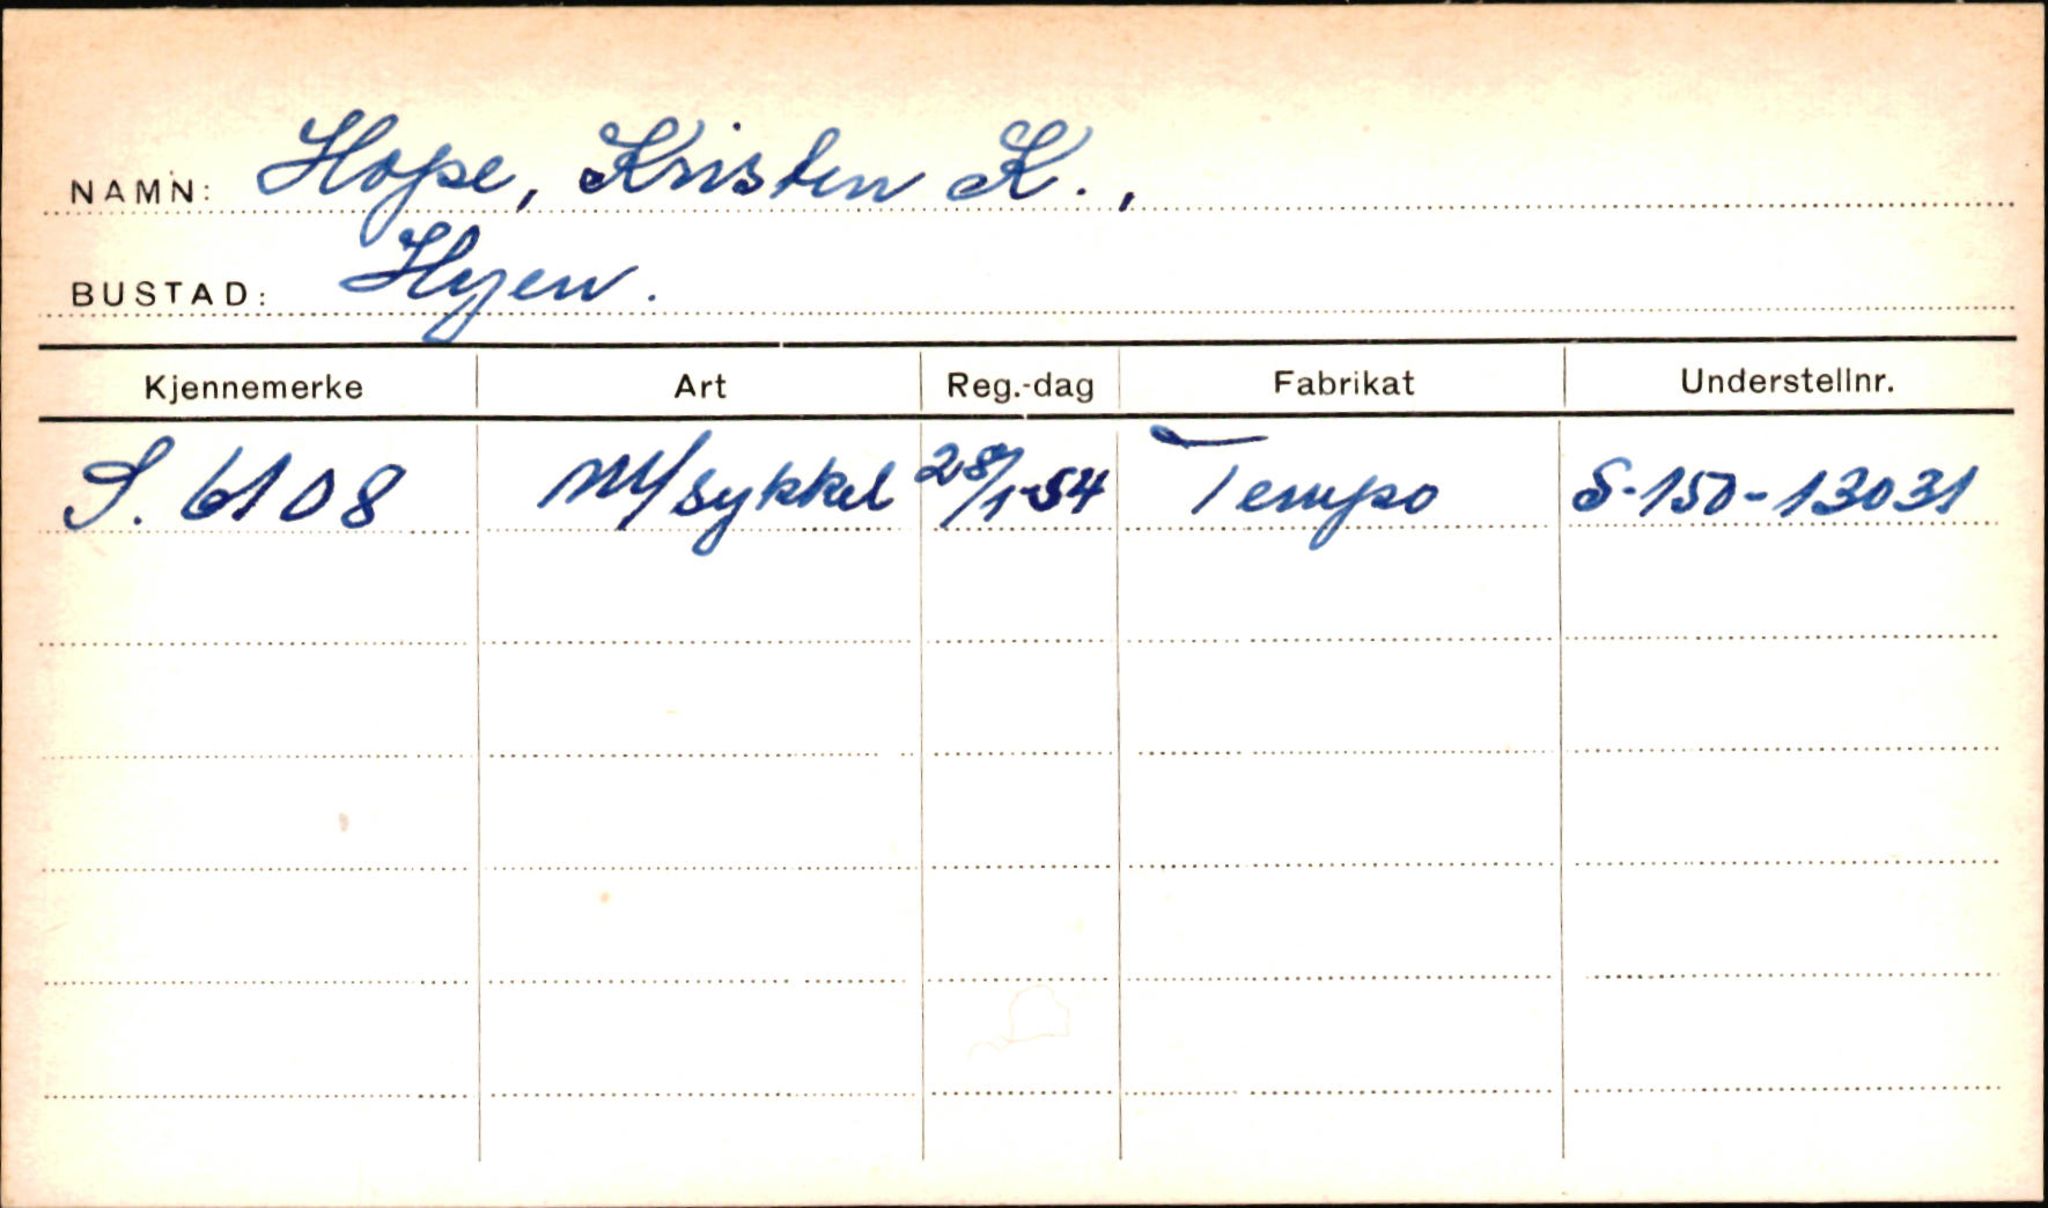 NAMN: Hope, Kristen K.,
BUSTAD: Hyen.
Kjennemerke Art Reg.-dag Fabrikat Understellnr.
S. 6108 M/sykkel 28/1-54 Tempo S-150-13031